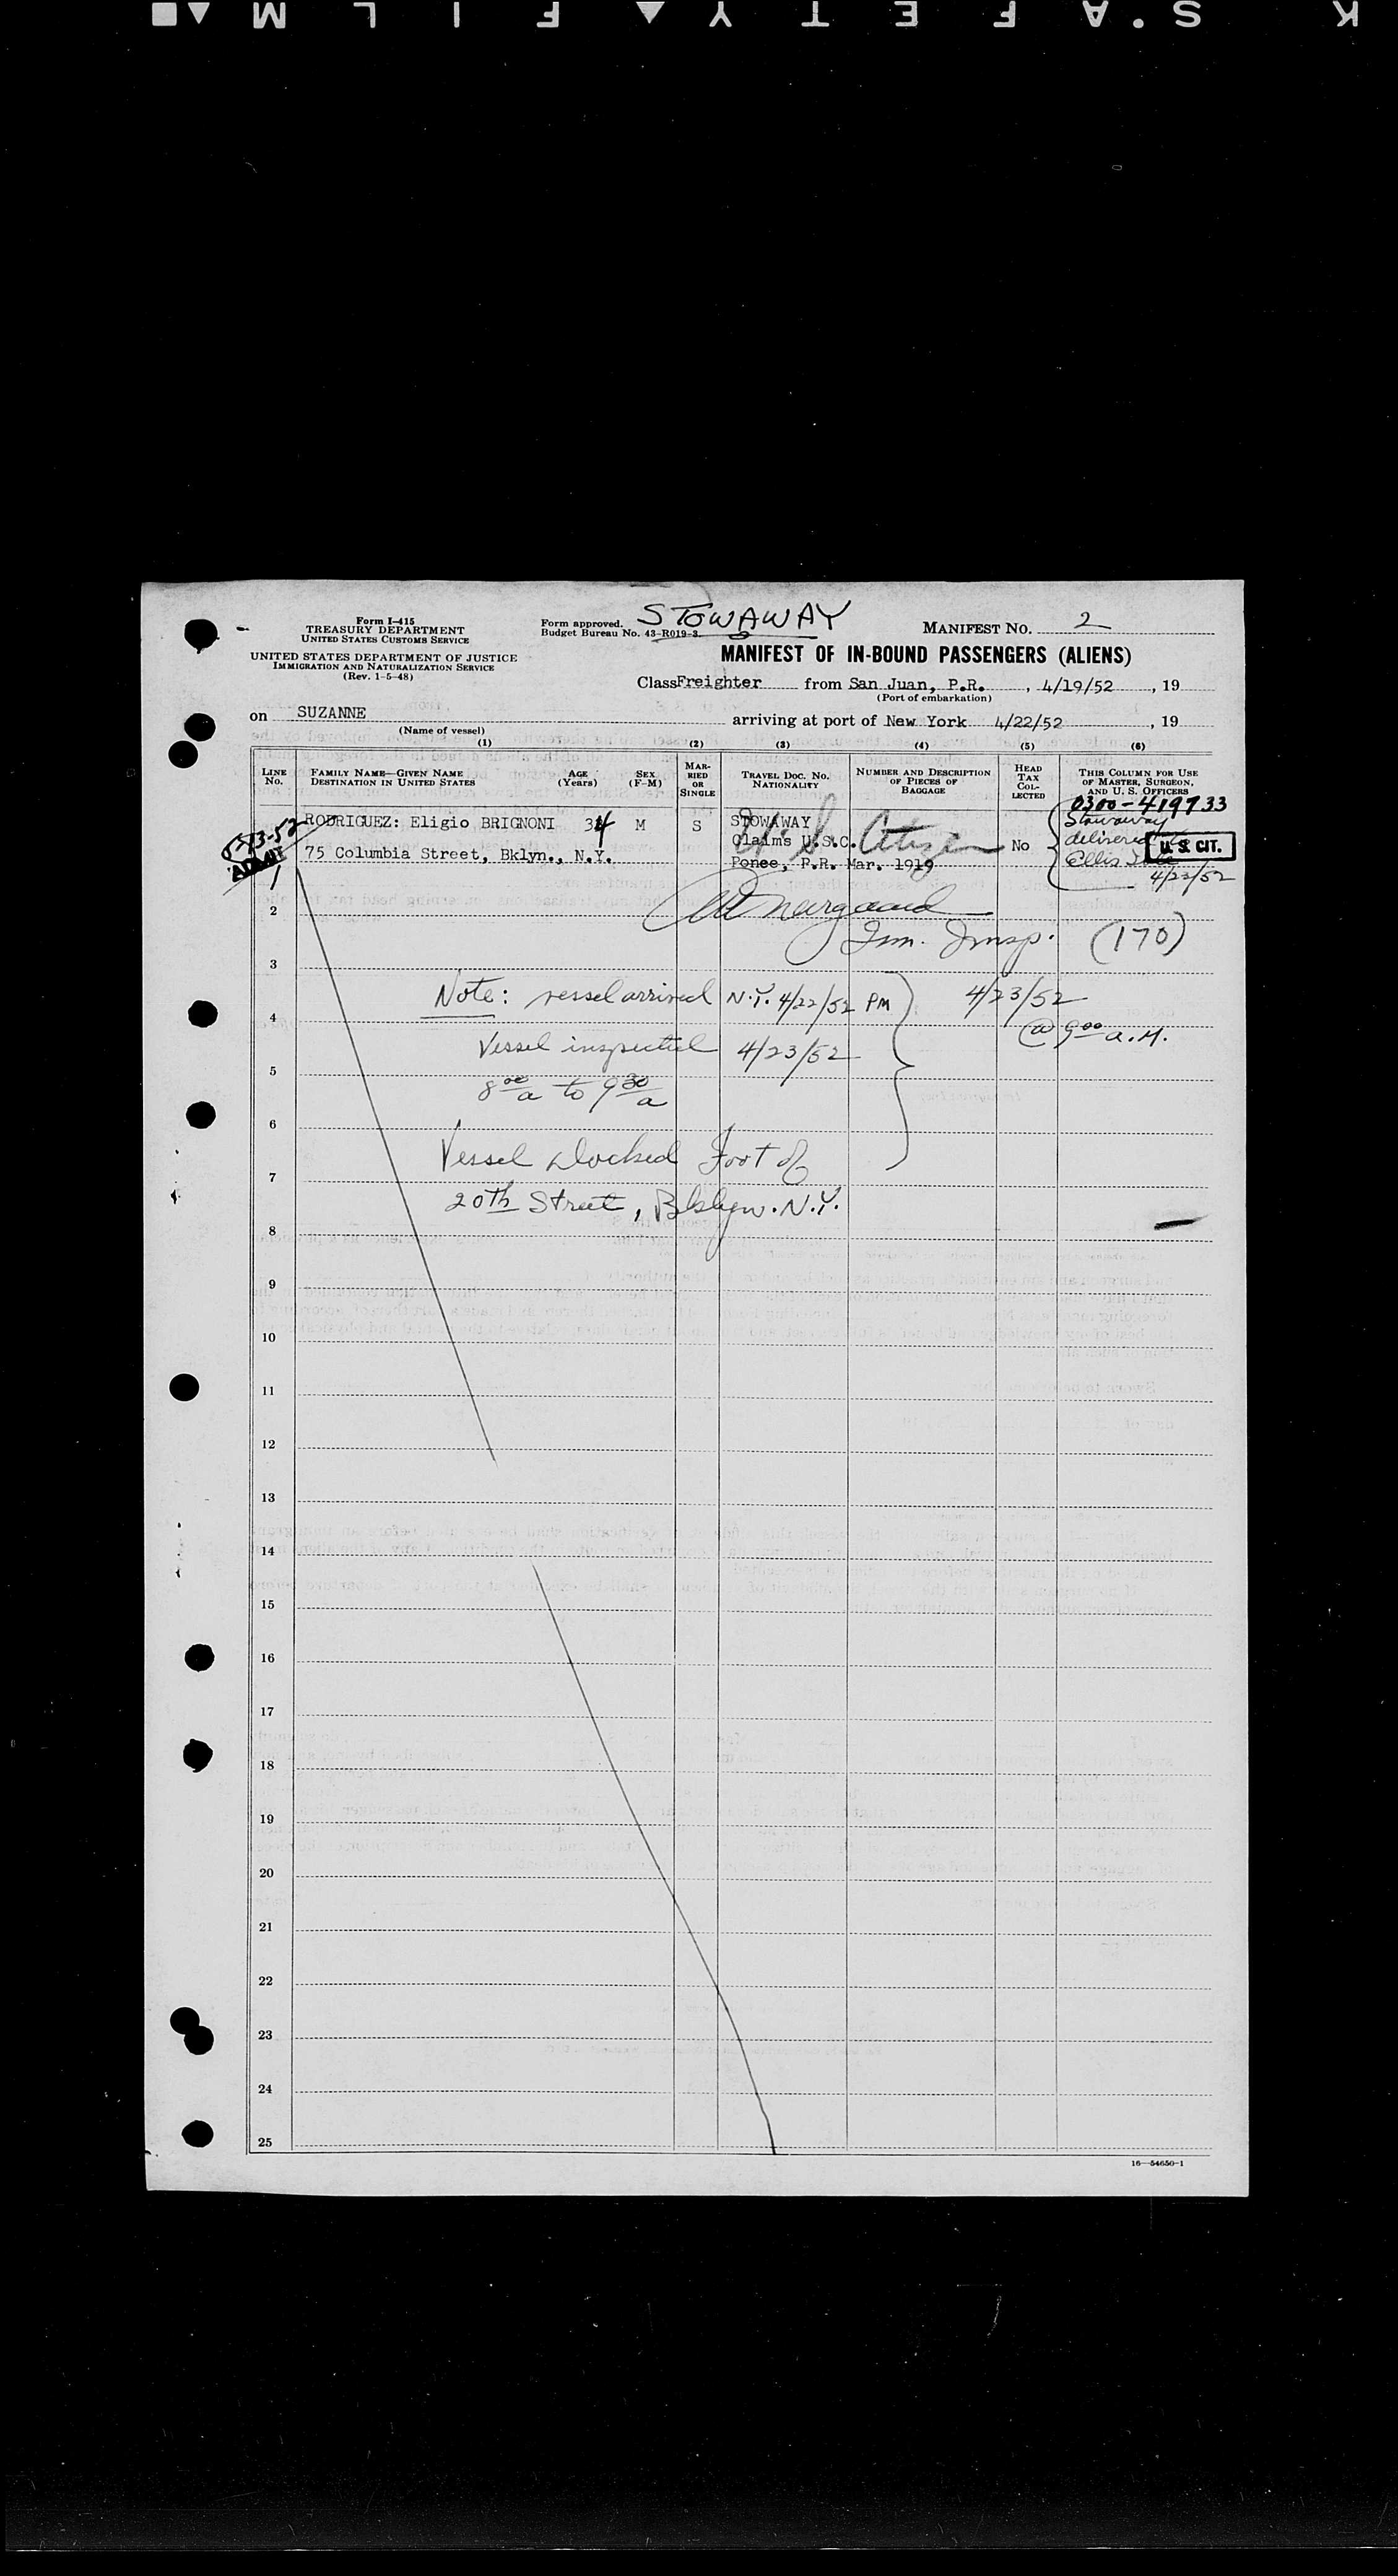 K S'AFETY FILM
Form I-415
TREASURY DEPARTMENT
UNITED STATES CUSTOMS SERVICE
UNITED STATES DEPARTMENT OF JUSTICE
IMMIGRATION AND NATURALIZATION SERVICE
(Rev. 1-5-48)
Form approved.
Budget Bureau No. 43-R019-3.
STOWAWAY
MANIFEST No. 2
MANIFEST OF IN-BOUND PASSENGERS (ALIENS)
Class Freighter from San Juan, P.R., 4/19/52, 19
(Port of embarkation)
on SUZANNE arriving at port of New York 4/22/52, 19
(Name of vessel)
(1) (2) (3) (4) (5) (6)
LINE No.
FAMILY NAME—GIVEN NAME
DESTINATION IN UNITED STATES
AGE (Years)
SEX (F-M)
MARRIED OR SINGLE
TRAVEL DOC. No.
NATIONALITY
NUMBER AND DESCRIPTION OF PIECES OF BAGGAGE
HEAD TAX COLLECTED
THIS COLUMN FOR USE OF MASTER, SURGEON, AND U. S. OFFICERS
0300-419733
RODRIGUEZ: Eligio BRIGNONI 34 M S STOWAWAY
Claims U.S.C.
75 Columbia Street, Bklyn., N.Y.
Ponce, P.R. Mar. 1919
U.S. Citizen
No
Stowaway
delivered
Ellis
U.S. CIT.
4/23/52
ADMIT
1
2
Imm. Insp. (170)
3
Note: vessel arrived N.Y. 4/22/52 PM
4/23/52
4
@ 9 00 a.M.
Vessel inspected 4/23/52
5
8 00 a to 9 30 a
6
Vessel docked Foot of
7
20th Street, Bklyn. N.Y.
8
9
10
11
12
13
14
15
16
17
18
19
20
21
22
23
24
25
16-54650-1